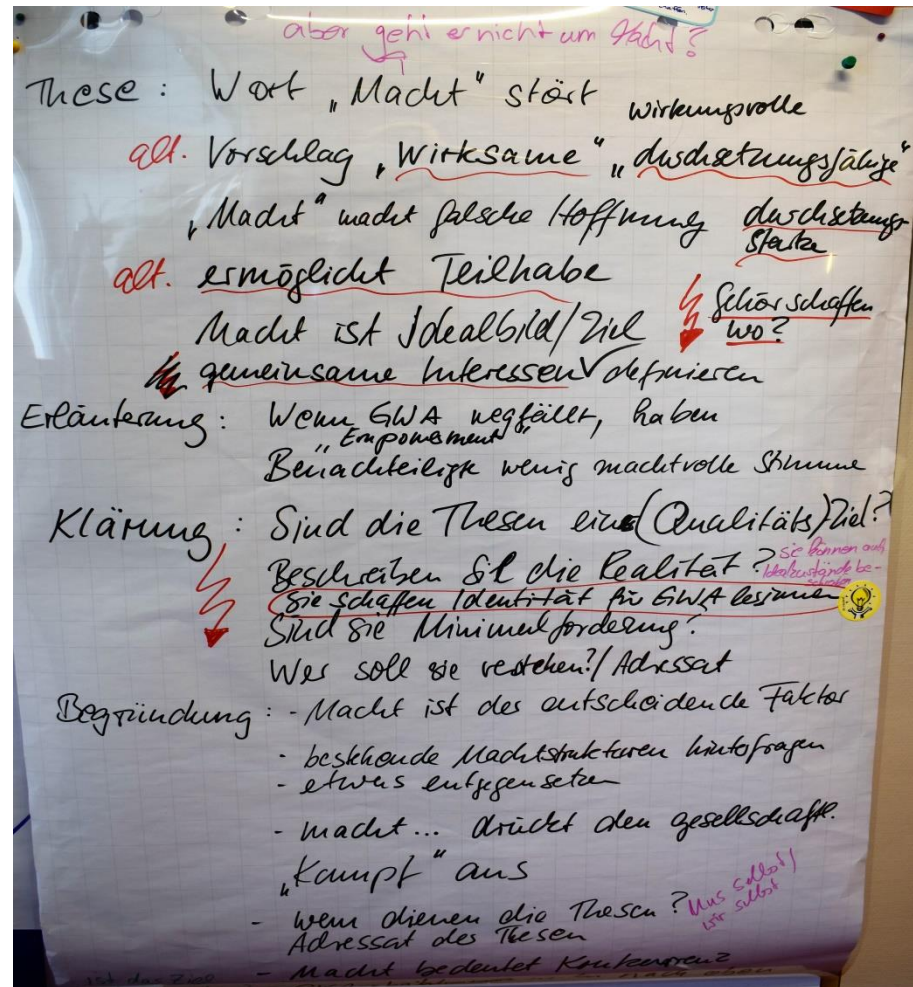 aber geht er nicht um Macht?
These: Wort „Macht" stört wirkungsvolle
alt. Vorschlag „Wirksame" „durchsetzungsfähige"
„Macht" macht falsche Hoffnung durchsetzungs-
starke
alt. ermöglicht Teilhabe
Gehör schaffen
Macht ist Idealbild/Ziel wo?
gemeinsame Interessen definieren
Erläuterung: Wenn GWA wegfällt, haben
„Empowerment"
Benachteiligte wenig machtvolle Stimme
Klärung: Sind die Thesen eine (Qualitäts)Ziel?
Beschreiben Sie die Realität? sie können auch
Idealzustände be-
Sie schaffen Identität für GWA
Sind sie Minimalforderung?
Wer soll sie verstehen?/Adressat
Begründung: - Macht ist der entscheidende Faktor
- bestehende Machtstrukturen hinterfragen
- etwas entgegensetzen
- macht... drückt den gesellschaftl.
„Kampf" aus
- wem dienen die Thesen? Uns selbst/
wir selbst
Adressat des Thesen
- Macht bedeutet Konkurrenz
ist das Ziel